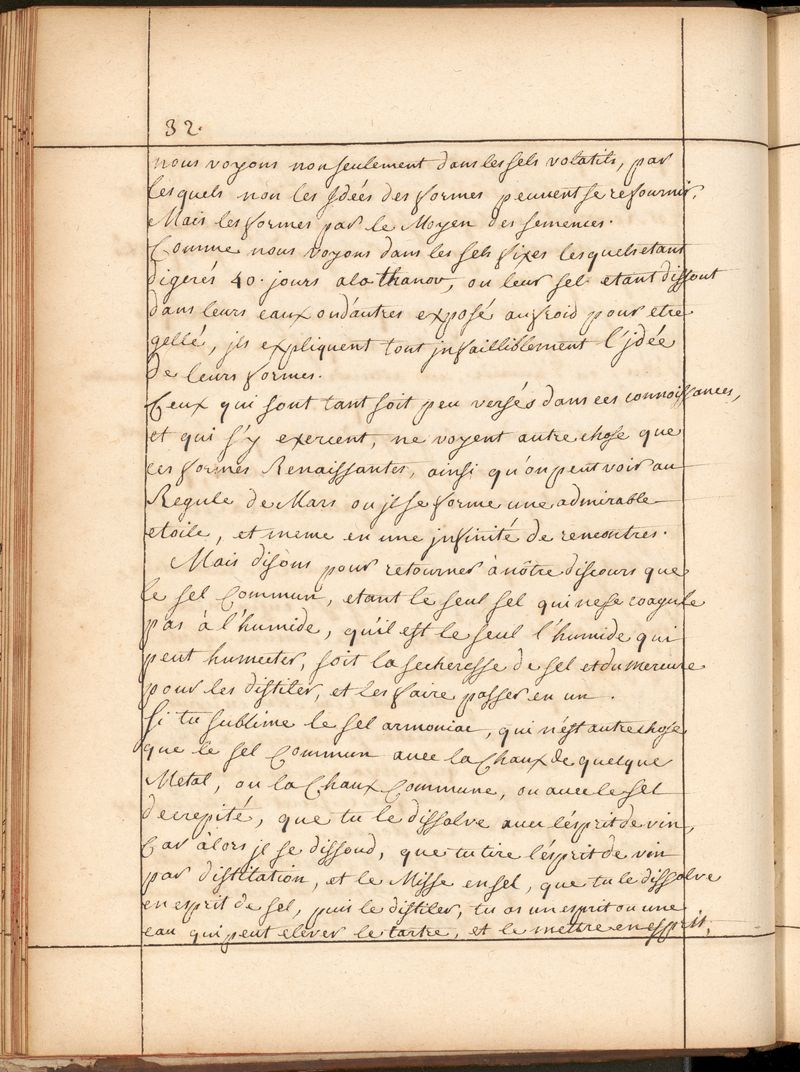 32.
nous voyons non seulement dans les sels volatils, par
lesquels non les Idées des formes peuvent se refournir,
Mais les formes par le Moyen des semences.
Comme nous voyons dans les sels fixes lesquels etant
digerés 40. jours a la thanor, ou leur sel etant dissout
dans leurs eaux ou d'autres exposé au froid pour etre
gellé, jls expliquent tout jnfailliblement l'jdée
De leurs formes.
Ceux qui sont tant soit peu versés dans ces connoissances,
et qui s'y exercent, ne voyent autre chose que
ces formes Renaissantes, ainsi qu'on peut voir au
Regule de Mars ou jl se forme une admirable
etoile, et meme en une jnfinité de rencontres.
Mais disons pour retourner à nôtre discours que
le sel Commun, etant le seul sel qui ne se coagule
pas à l'humide, qu'il est le seul l'humide qui
peut humecter, soit la secheresse de sel et du mercure
pour les distiler, et les faire passer en un.
Si tu sublime le sel armoniac, qui n'est autre chose
que le sel Commun avec la Chaux de quelque
Metal, ou la Chaux Commune, ou avec le sel
decrepité, que tu le dissolve avec l'ésprit de vin,
Car àlors jl se dissoud, que tu tire l'ésprit de vin
par distitation, et le Misse en sel, que tu le dissolve
en esprit de sel, puis le distiler, tu as un esprit ou une
eau qui peut elever le tartre, et le mettre en esprit,